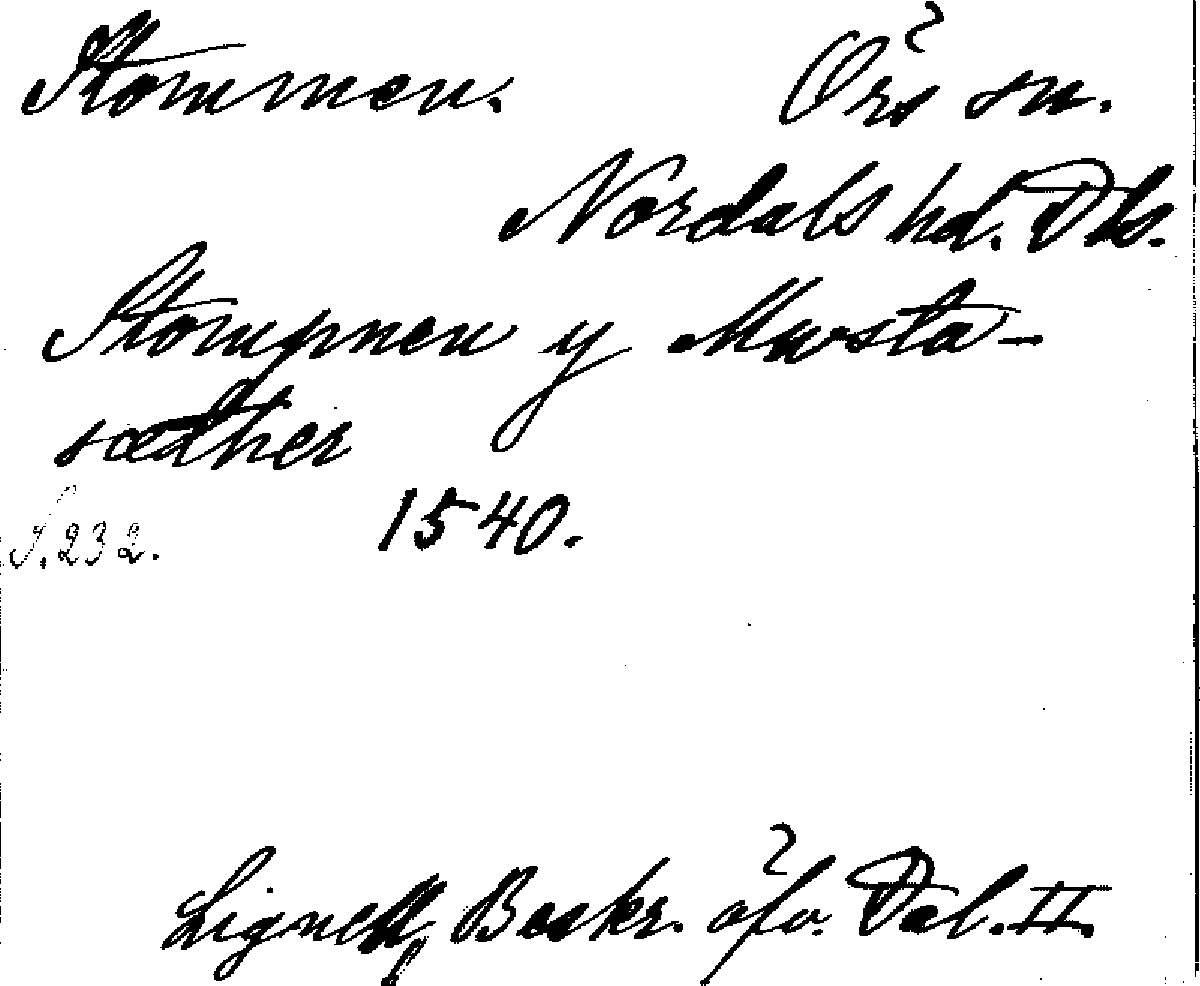 Stommen. Örs sn.
Nordals hd. Dls.
Stompnen y Mwsta-
sædher
S. 232. 1540.
Lignell, Beskr. öfv. Dal. II.